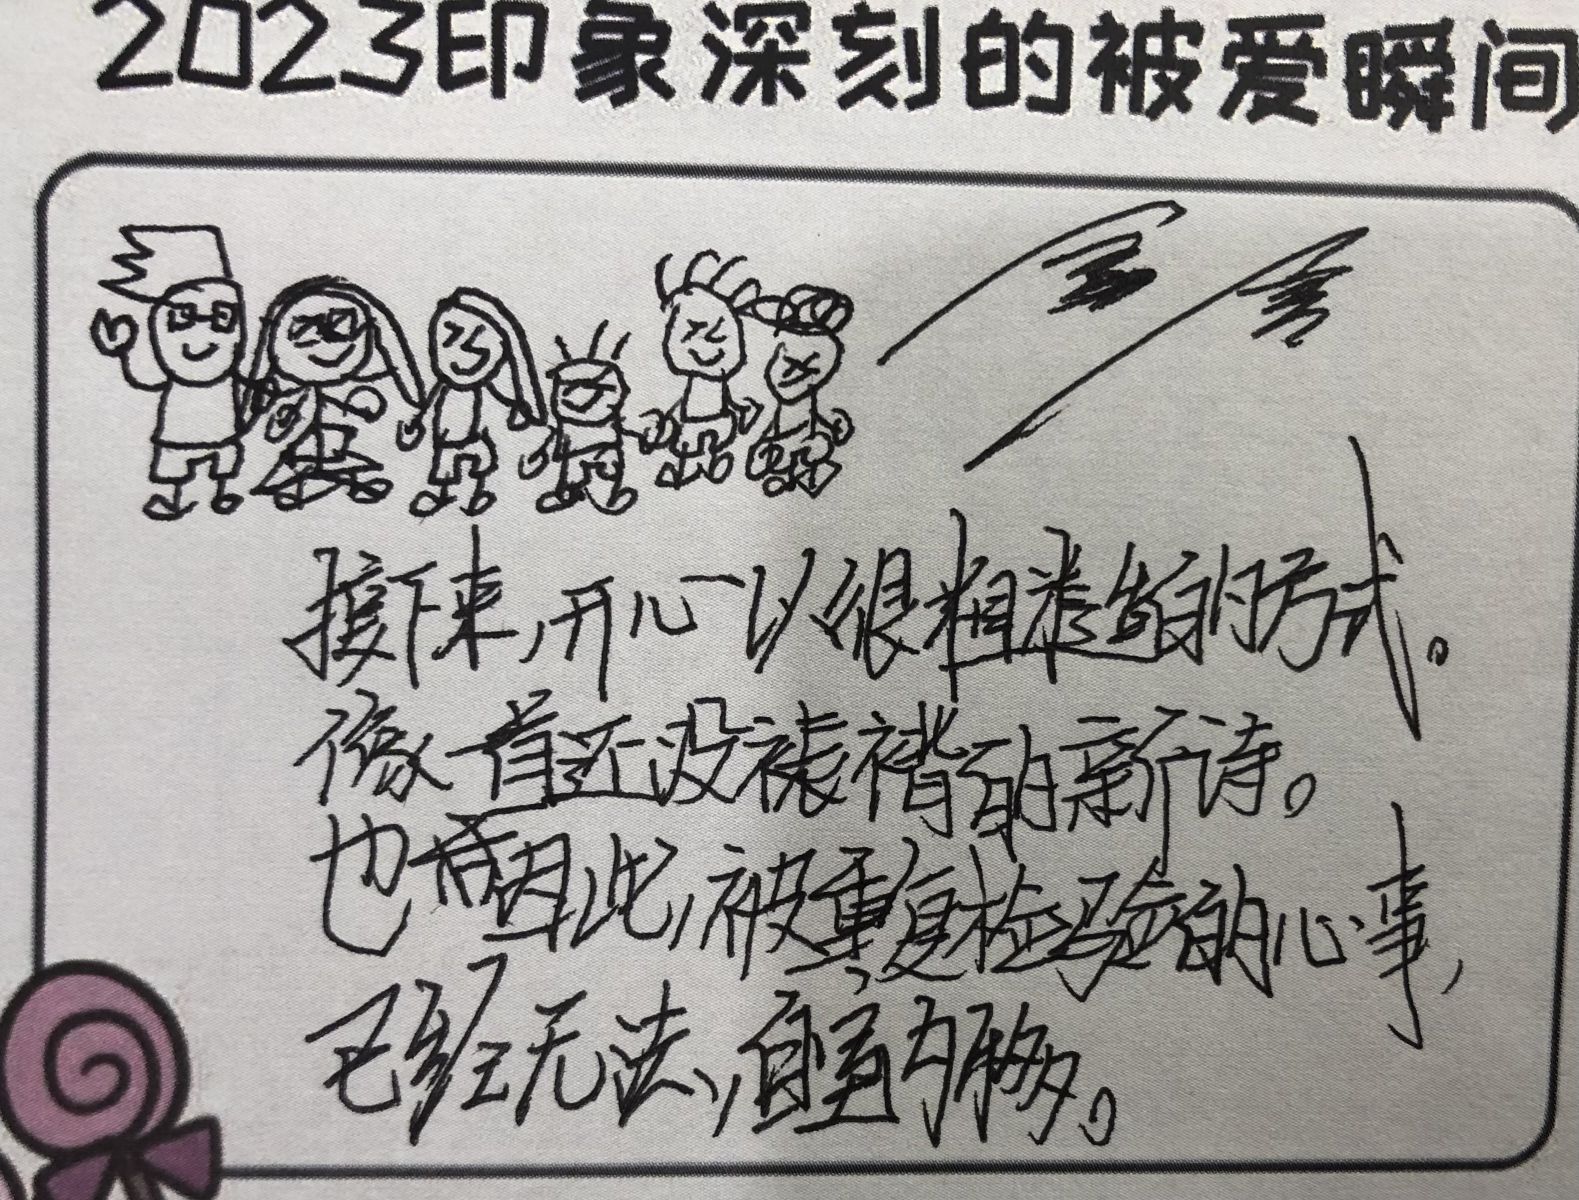 2023印象深刻的被爱瞬间
接下来,开心以很粗糙的方式。
像一首还没装裱的新诗。
也因此,被重复检验的心事,
已经无法,自动挪移。